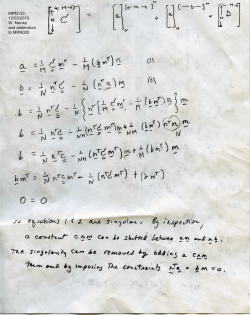 MRN123
12/03/2013
W. Menke
and addendum
to MRN028
a = 1/M C mᵀ - 1/M (b mᵀ) n (1)
b = 1/N nᵀC - 1/N (nᵀa) m (2)
b = 1/N nᵀC - 1/N { nᵀ [ 1/M C mᵀ - 1/M (b mᵀ) n ] } m
b = 1/N nᵀC - 1/NM (nᵀC mᵀ) m + 1/NM (b mᵀ) (nᵀn) m
b = 1/N nᵀC - 1/NM (nᵀC mᵀ) m + 1/M (b mᵀ) m
b mᵀ = 1/N nᵀC mᵀ - 1/N (nᵀC mᵀ) + (b mᵀ)
0 = 0
so equations 1 & 2 are singular. By inspection,
a constant c n m can be shifted between a m and n b.
The singularity can be removed by adding a c n m
term and by imposing the constraints nᵀa = b m = 0.